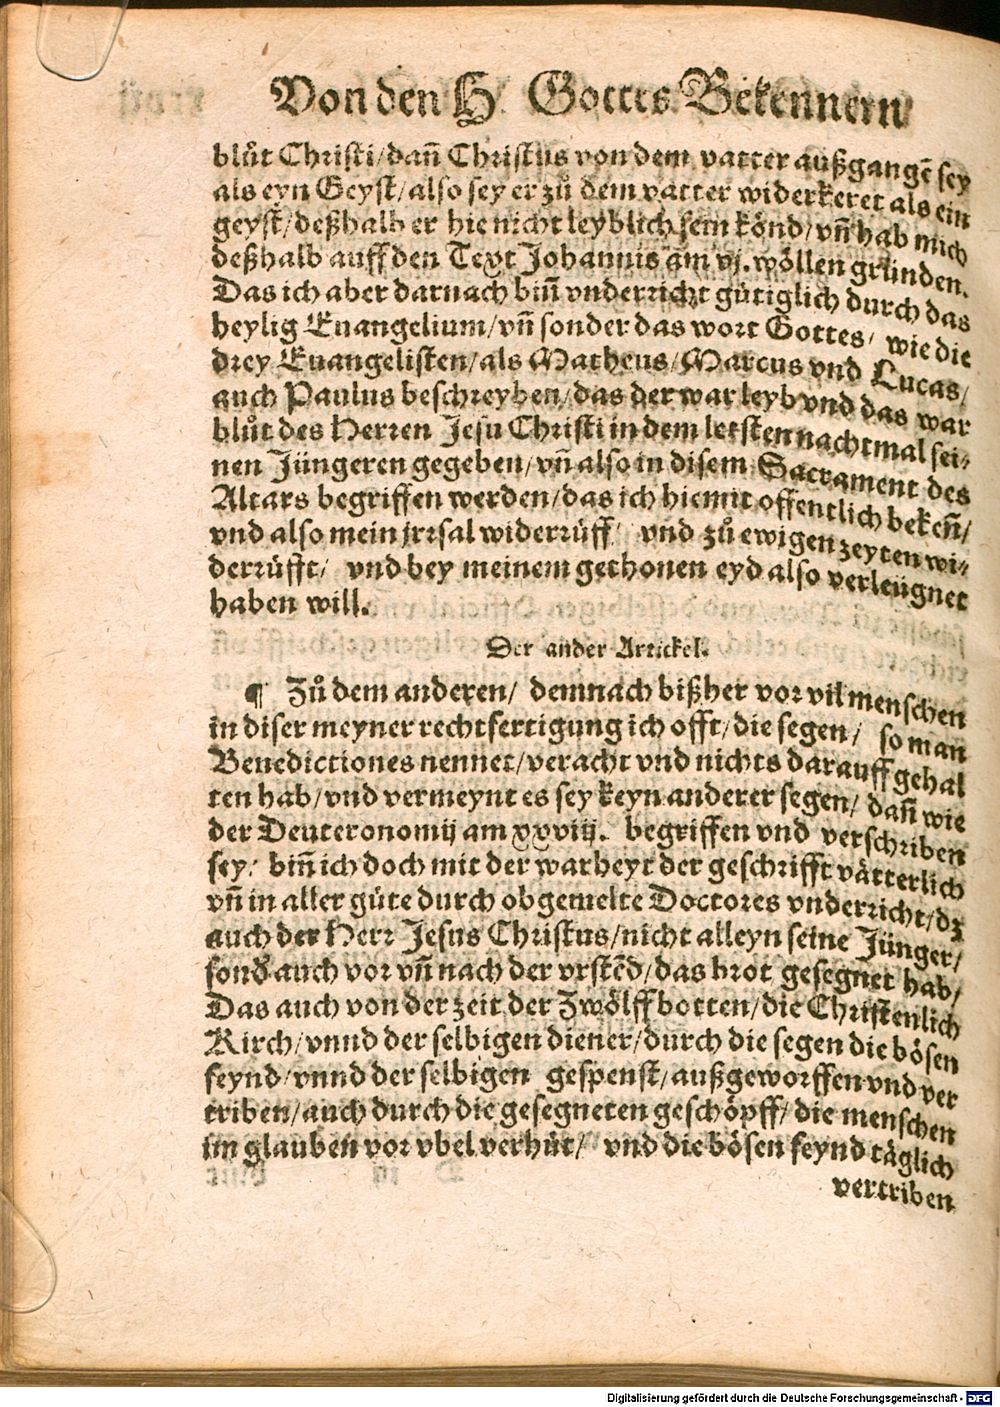 Von den H. Gottes Bekennern
blůt Christi/dañ Christus von dem vatter außgangē sey
als eyn Geyst/also sey er zů dem vatter widerkeret als ein
geyst/deßhalb er hie nicht leyblich sein könd/vñ hab mich
deßhalb auff den Text Johannis am vj. wöllen gründen.
Das ich aber darnach biñ vnderricht gütiglich durch das
heylig Euangelium/vñ sonder das wort Gottes/ wie die
drey Euangelisten/als Matheus/Marcus vnd Lucas/
auch Paulus beschreyben/das der war leyb vnd das war
blůt des Herren Jesu Christi in dem letsten nachtmal sei⸗
nen Jüngeren gegeben/vñ also in disem Sacrament des
Altars begriffen werden/das ich hiemit offentlich bekeñ/
vnd also mein jrrsal widerrüff/ vnd zů ewigen zeyten wi⸗
derrüfft/ vnd bey meinem gethonen eyd also verleugnet
haben will.
Der ander Artickel.
¶ Zů dem anderen/ demnach bißher vor vil menschen
in diser meyner rechtfertigung ich offt/die segen/ so man
Benedictiones nennet/veracht vnd nichts darauff gehal
ten hab/vnd vermeynt es sey keyn anderer segen/ dañ wie
der Deuteronomij am xxviij. begriffen vnd verschriben
sey/ biñ ich doch mit der warheyt der geschrifft vätterlich
vñ in aller güte durch obgemelte Doctores vnderricht/dz
auch der Herr Jesus Christus/nicht alleyn seine Jünger/
sond̕ auch vor vñ nach der vrstēd/das brot gesegnet hab/
Das auch von der zeit der Zwölffbotten/die Christenlich
Kirch/vnnd der selbigen diener/durch die segen die bösen
feynd/vnnd der selbigen gespenst/außgeworffen vnd ver
triben/auch durch die gesegneten geschöpff/die menschen
im glauben vor vbel verhüt/ vnd die bösen feynd täglich
vertriben
Digitalisierung gefördert durch die Deutsche Forschungsgemeinschaft - DFG